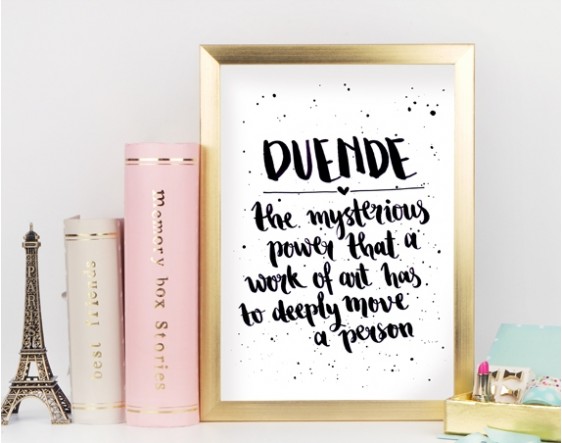 DUENDE
the mysterious
power that a
work of art has
to deeply move
a person
memory box Stories
best friends
PARIS